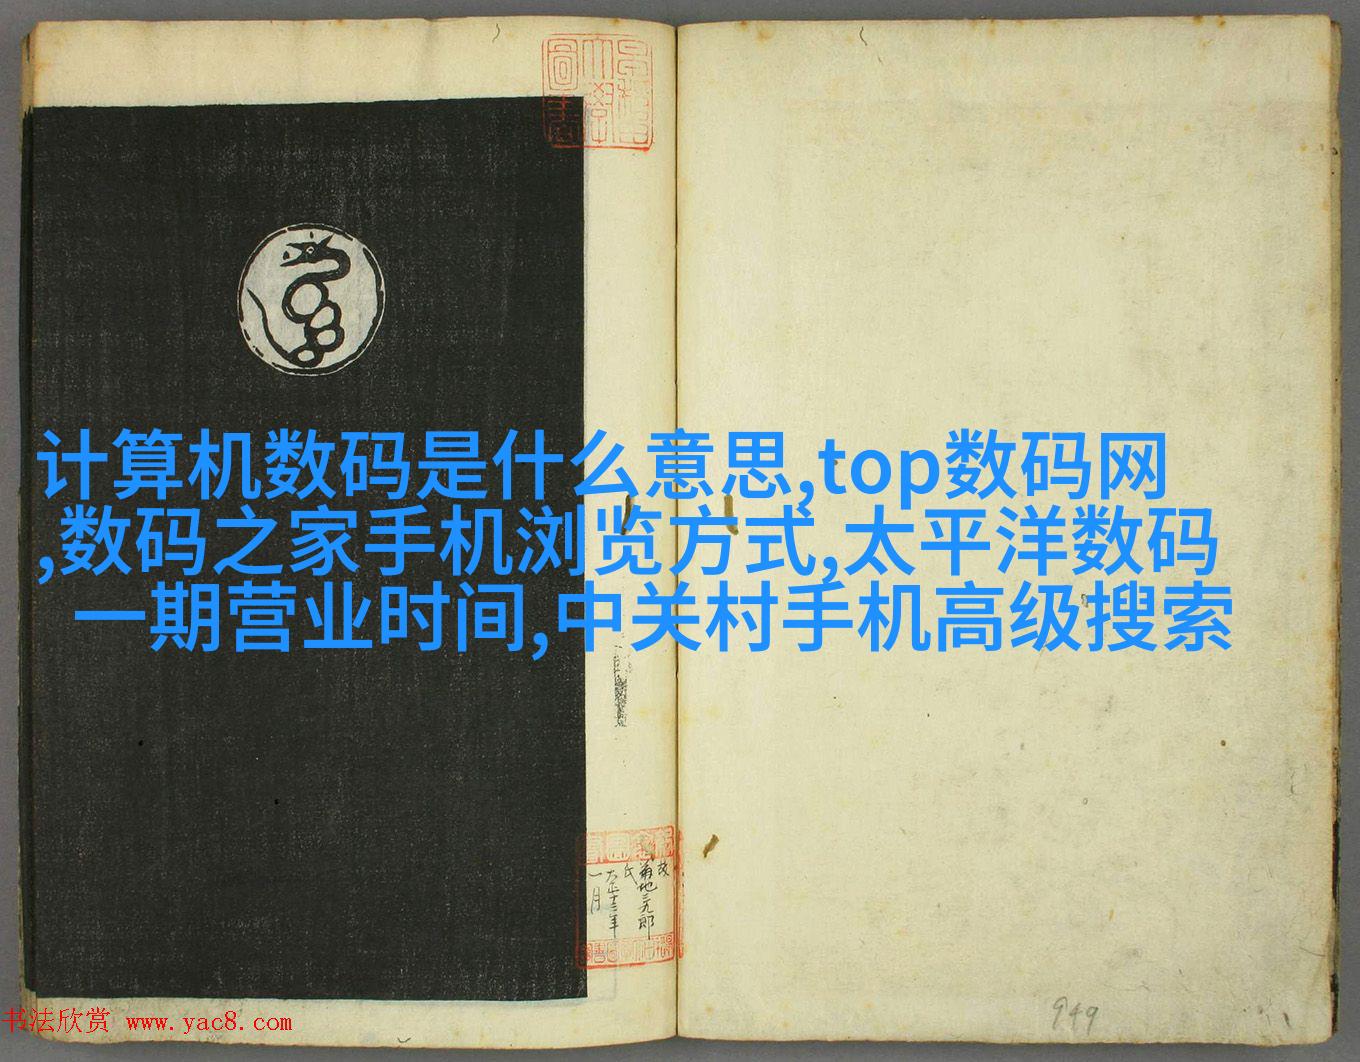 计算机数码是什么意思,top数码网
,数码之家手机浏览方式,太平洋数码
一期营业时间,中关村手机高级搜索
故
菊地三九郎
氏
大正十三年
一月
949
书法欣赏 www.yac8.com